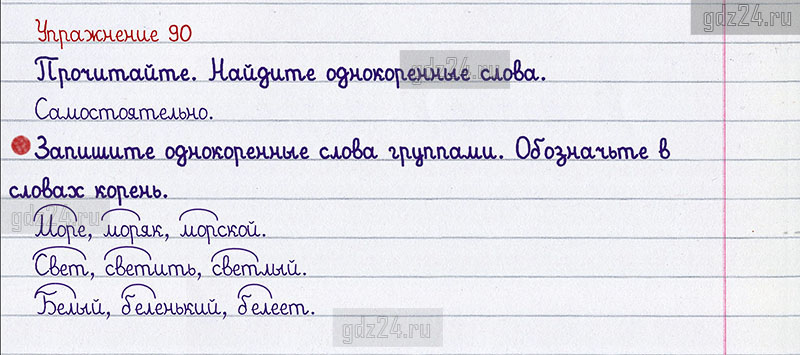 gdz24.ru
Упражнение 90
Прочитайте. Найдите однокоренные слова.
gdz24.ru
Самостоятельно.
Запишите однокоренные слова группами. Обозначьте в
словах корень.
gdz24.ru
Море, моряк, морской.
Свет, светить, светлый.
Белый, беленький, белеет.
gdz24.ru